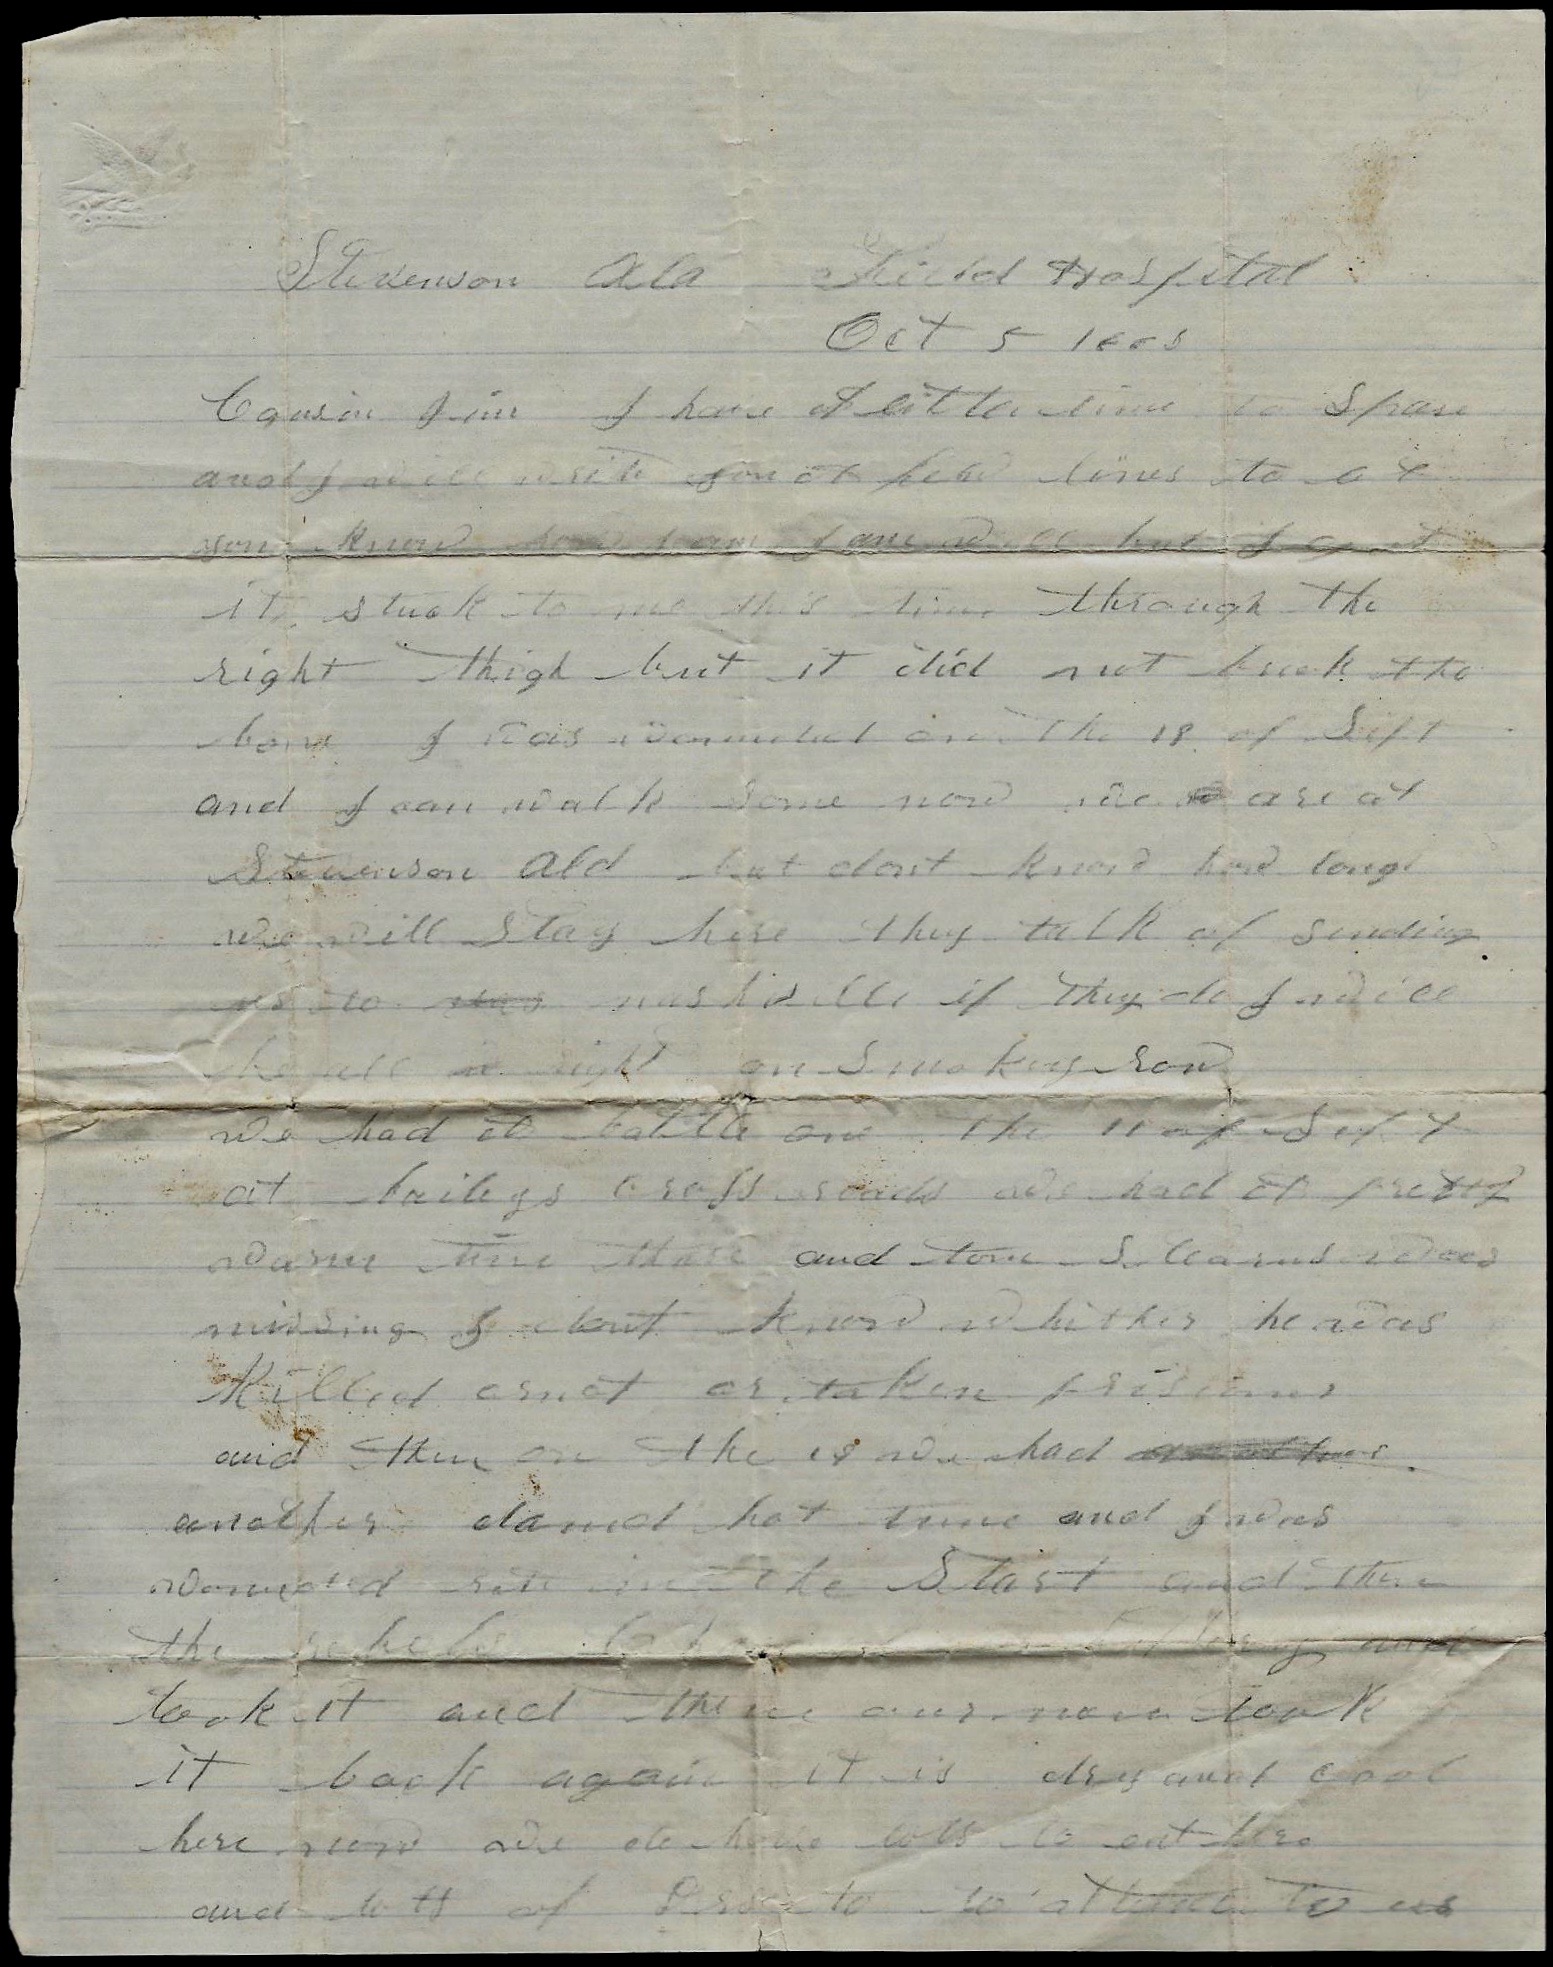 Stevenson Ala Field Hospital
Oct 5 1863
Cousin Jim I have A little time to Spare
and I will write you A few lines to let
you know how I am I am well but I got
it stuck to me this time through the
right thigh but it did not break the
bone I was wounded on the 19 of Sept
and I can walk some now we are at
Stevenson Ala but dont know how long
we will Stay here they talk of sending
us to nashville if they do I will
be all right on Smokey row
we had A battle on the 11 of Sept
at baileys cross roads we had A pretty
warm time thare and tom Stearns was
missing I dont know whither he was
Killed or not or taken prisoner
and then on the 19 we had
another damd hot time and I was
wounded rite in the Start and then
the rebels battery and
took it and then our men took
it back again it is dry and cool
here now we do have lots to eat here
and lots of to attend to us